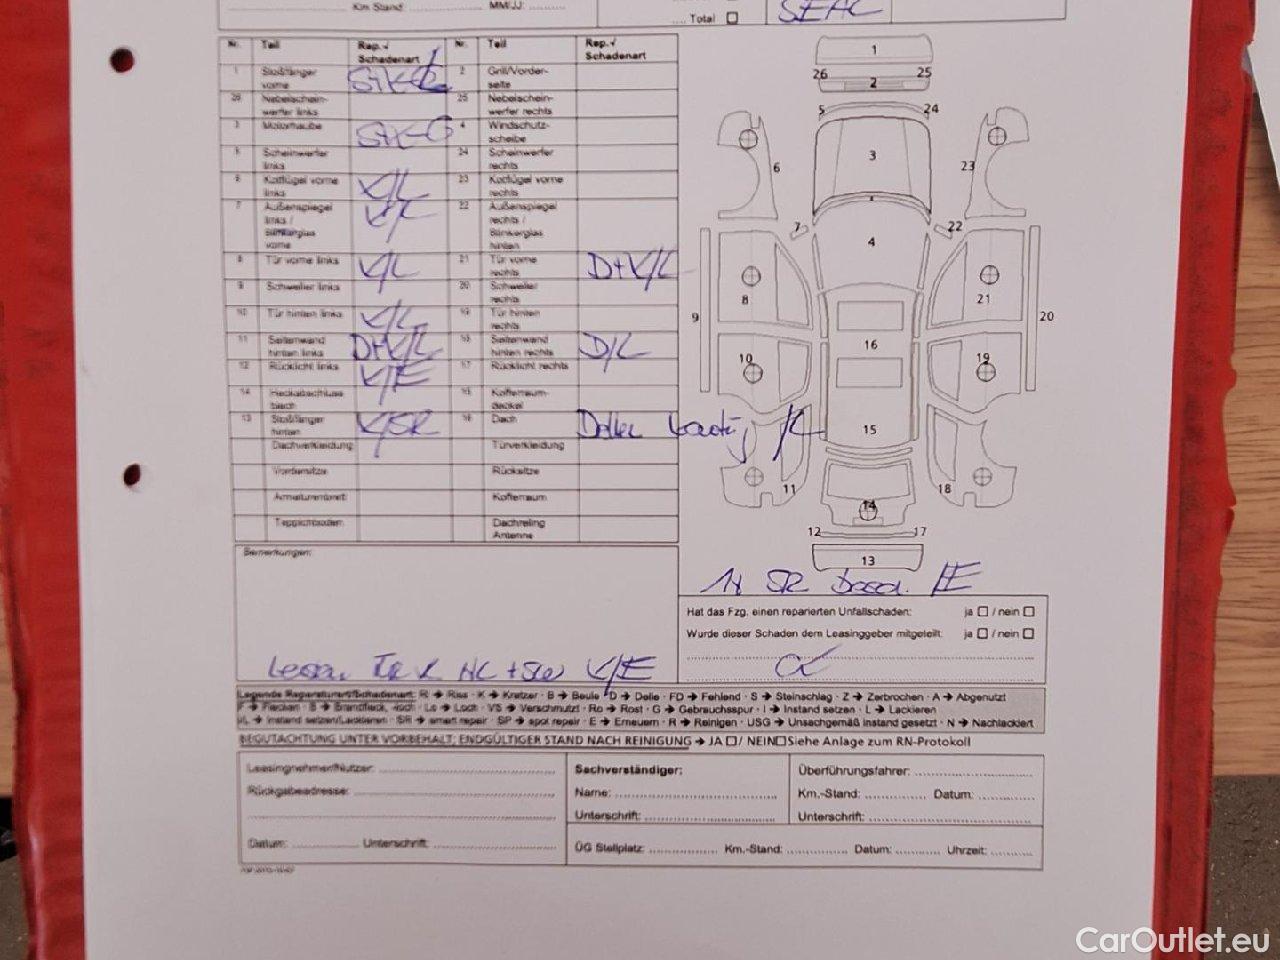 Km Stand: MM/JJ:
.... Total ☐ SEAL
Nr. Teil Rep.✓ Schadenart Nr. Teil Rep.✓ Schadenart
1 Stoßfänger vorne 2 Grill/Vorderseite
26 Nebelscheinwerfer links 25 Nebelscheinwerfer rechts
3 Motorhaube 4 Windschutzscheibe
5 Scheinwerfer links 24 Scheinwerfer rechts
6 Kotflügel vorne links K/L 23 Kotflügel vorne rechts
7 Außenspiegel links / Blinkerglas vorne K/L 22 Außenspiegel rechts / Blinkerglas hinten
8 Tür vorne links K/L 21 Tür vorne rechts D+K/L
9 Schweller links 20 Schweller rechts
10 Tür hinten links K/L 19 Tür hinten rechts
11 Seitenwand hinten links D+K/L 18 Seitenwand hinten rechts D/L
12 Rücklicht links K/E 17 Rücklicht rechts
14 Heckabschlussblech 15 Kofferraumdeckel
13 Stoßfänger hinten K/SR 16 Dach Dellen
Dachverkleidung Türverkleidung
Vordersitze Rücksitze
Armaturenbrett Kofferraum
Teppichboden Dachreling Antenne
1
26 25
2
5 24
3
6 23
7 22
4
8 21
9 20
16
10 19
15
11 18
14
12 17
13
Bemerkungen:
1x SR
Hat das Fzg. einen reparierten Unfallschaden: ja ☐ / nein ☐
Wurde dieser Schaden dem Leasinggeber mitgeteilt: ja ☐ / nein ☐
K/E
Legende Reparaturart/Schadenart: R → Riss · K → Kratzer · B → Beule · D → Delle · FD → Fehlend · S → Steinschlag · Z → Zerbrochen · A → Abgenutzt
F → Flecken · B → Brandfleck, -loch · Lo → Loch · VS → Verschmutzt · Ro → Rost · G → Gebrauchsspur · I → Instand setzen · L → Lackieren
I/L → Instand setzen/Lackieren · SR → smart repair · SP → spot repair · E → Erneuern · R → Reinigen · USG → Unsachgemäß instand gesetzt · N → Nachlackiert
BEGUTACHTUNG UNTER VORBEHALT; ENDGÜLTIGER STAND NACH REINIGUNG → JA ☐ / NEIN ☐ Siehe Anlage zum RN-Protokoll
Leasingnehmer/Nutzer: Sachverständiger: Überführungsfahrer:
Rückgabeadresse: Name: Km.-Stand: Datum:
Unterschrift: Unterschrift:
Datum: Unterschrift: ÜG Stellplatz: Km.-Stand: Datum: Uhrzeit:
CarOutlet.eu